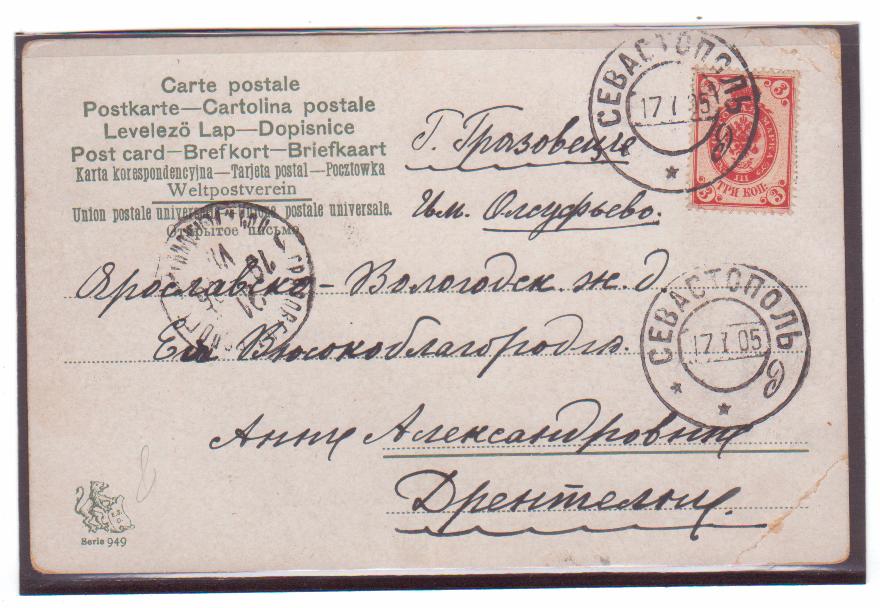 Carte postale
Postkarte—Cartolina postale
Levelező Lap—Dopisnice
Post card—Brefkort—Briefkaart
Karta korespondencyjna—Tarjeta postal—Pocztowka
Weltpostverein
Union postale universelle postale universale.
Открытое письмо
СЕВАСТОПОЛЬ
17 X 05
ТРИ КОП.
3 3
Г. Грязовецъ
Им. Олсуфьево.
Ярославско-Вологодск. ж. д.
Ея Высокоблагородiю
СЕВАСТОПОЛЬ
17 X 05
Аннѣ Александровнѣ
Дрентельнъ.
Serie 949